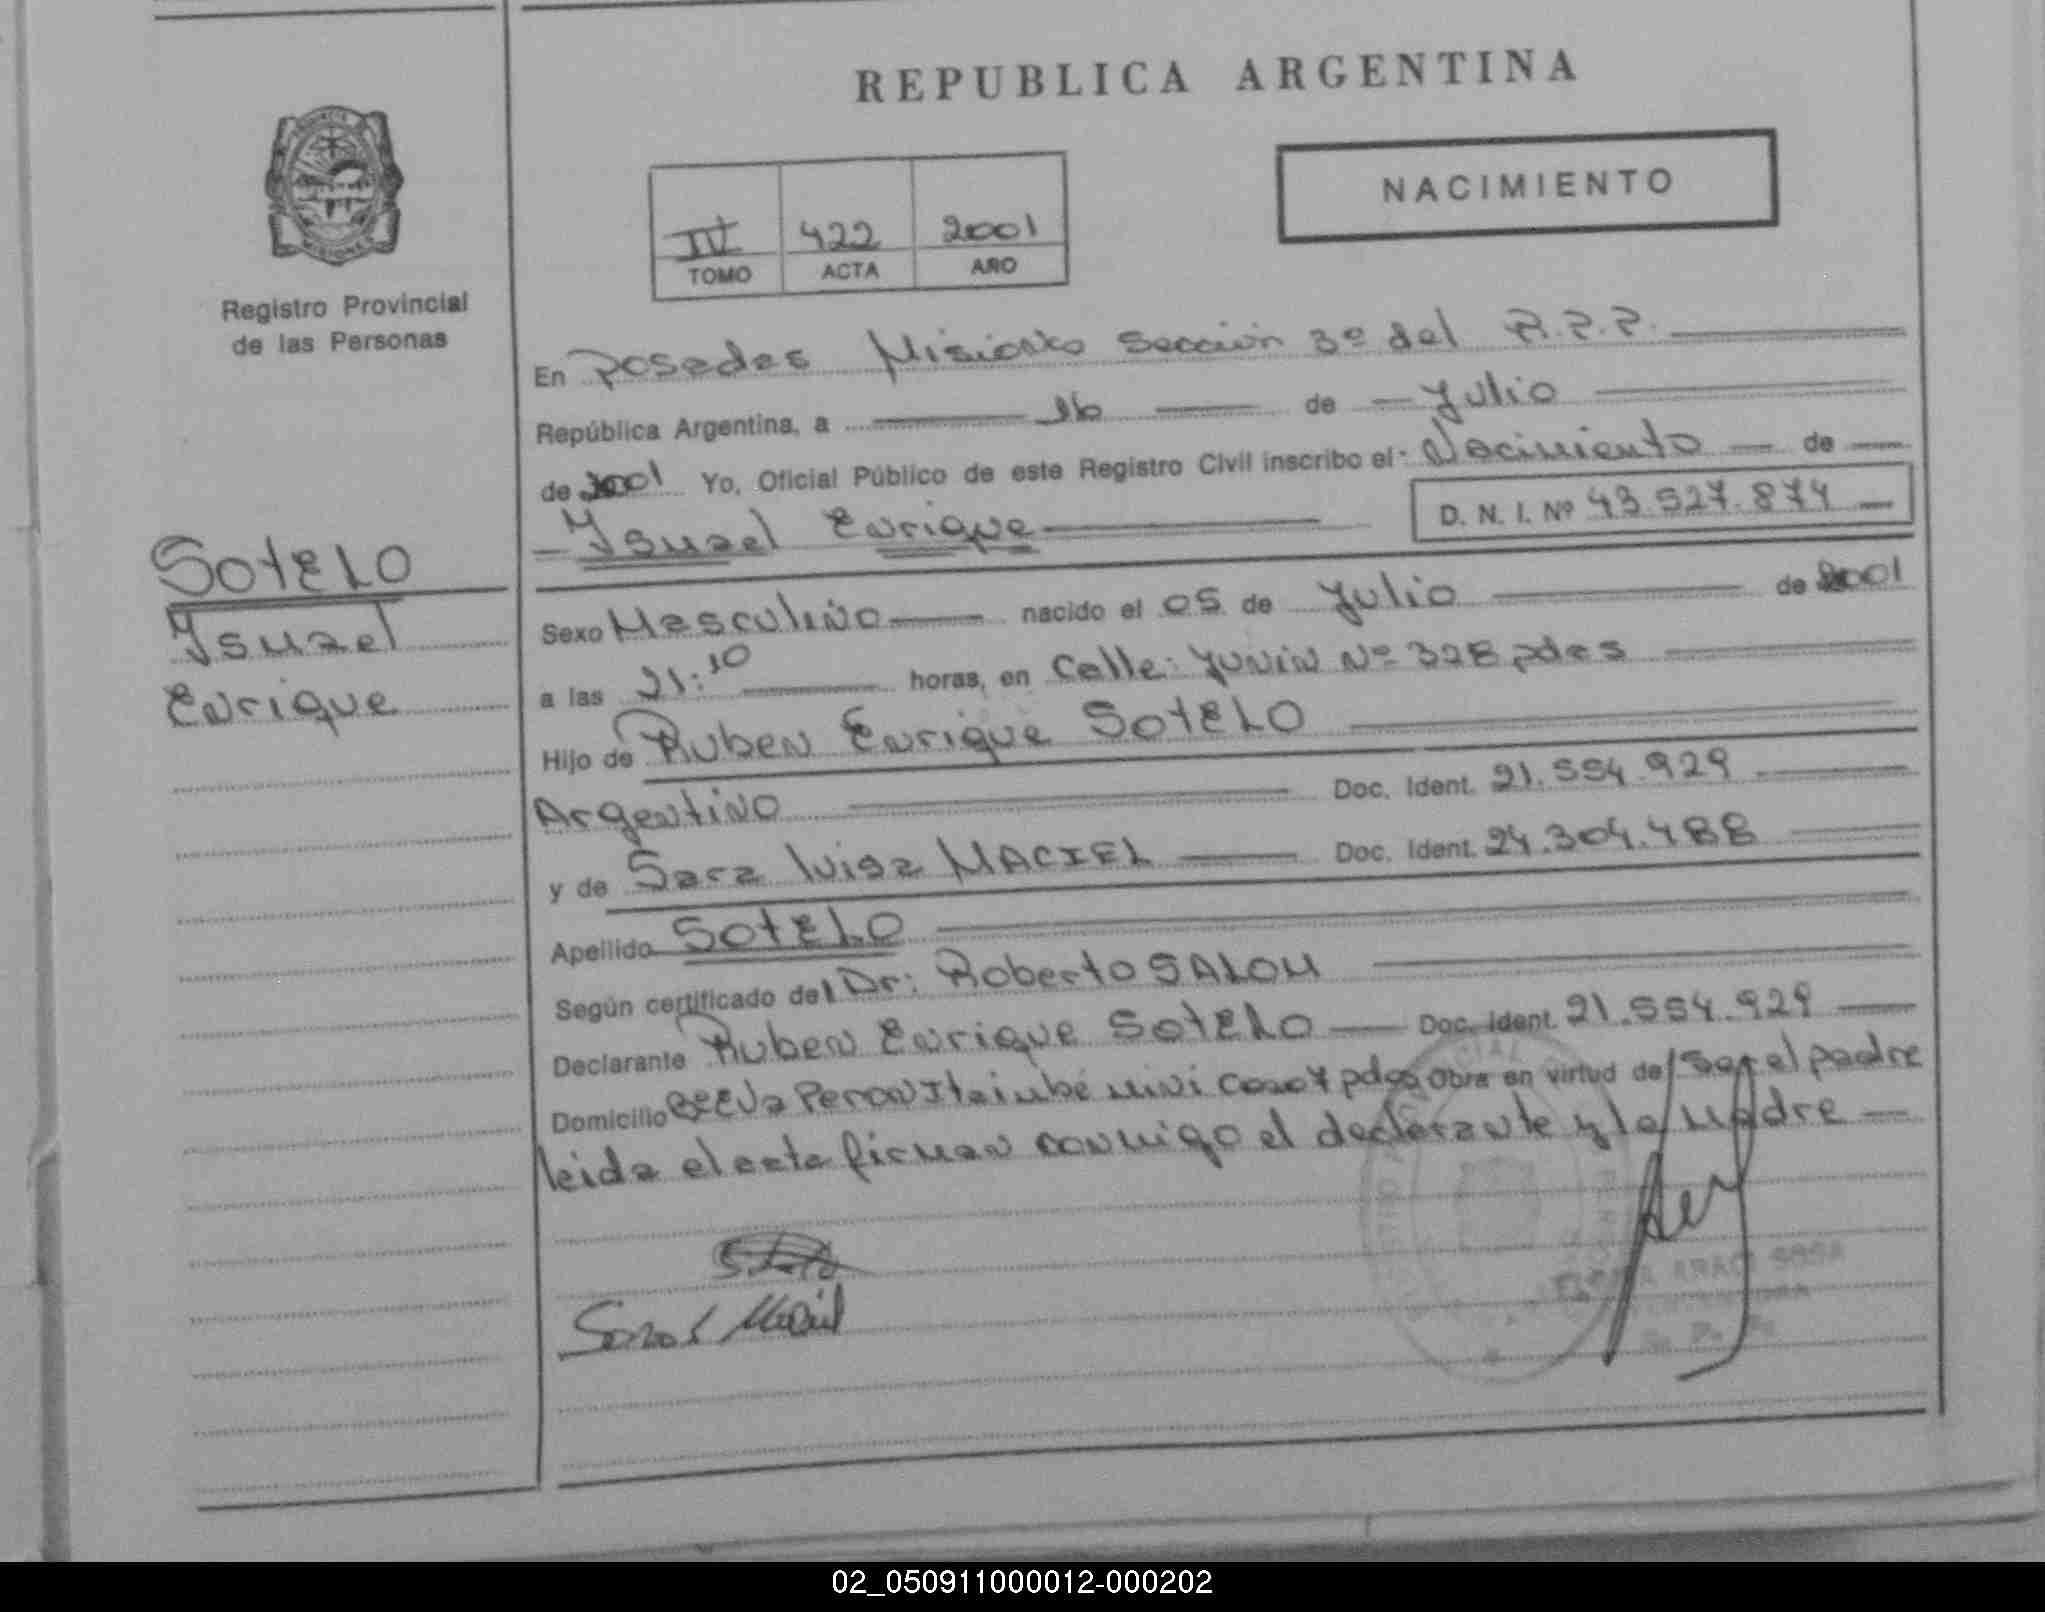 REPUBLICA ARGENTINA
NACIMIENTO
IV 422 2001
TOMO ACTA AÑO
Registro Provincial
de las Personas
En Posadas Misiones Sección 3º del R.P.P.
República Argentina, a 16 de Julio
de 2001 Yo, Oficial Público de este Registro Civil inscribo el: Nacimiento de
Ismael Enrique D. N. I. Nº 43.527.874
SOTELO
Ismael
Enrique
Sexo Masculino nacido el 05 de Julio de 2001
a las 21:10 horas, en Calle: Junín Nº 328 pdas
Hijo de Ruben Enrique SOTELO
Argentino Doc. Ident. 21.554.929
y de Sara Luisa MACIEL Doc. Ident. 24.304.488
Apellido SOTELO
Según certificado del Dr: Roberto SALOM
Declarante Ruben Enrique SOTELO Doc. Ident. 21.554.929
Domicilio Eva Peron Itaimbé mini pdas Obra en virtud de Ser el padre
leida el acta firman conmigo el declarante y la Madre
SOSA
R. P. P.
02_050911000012-000202